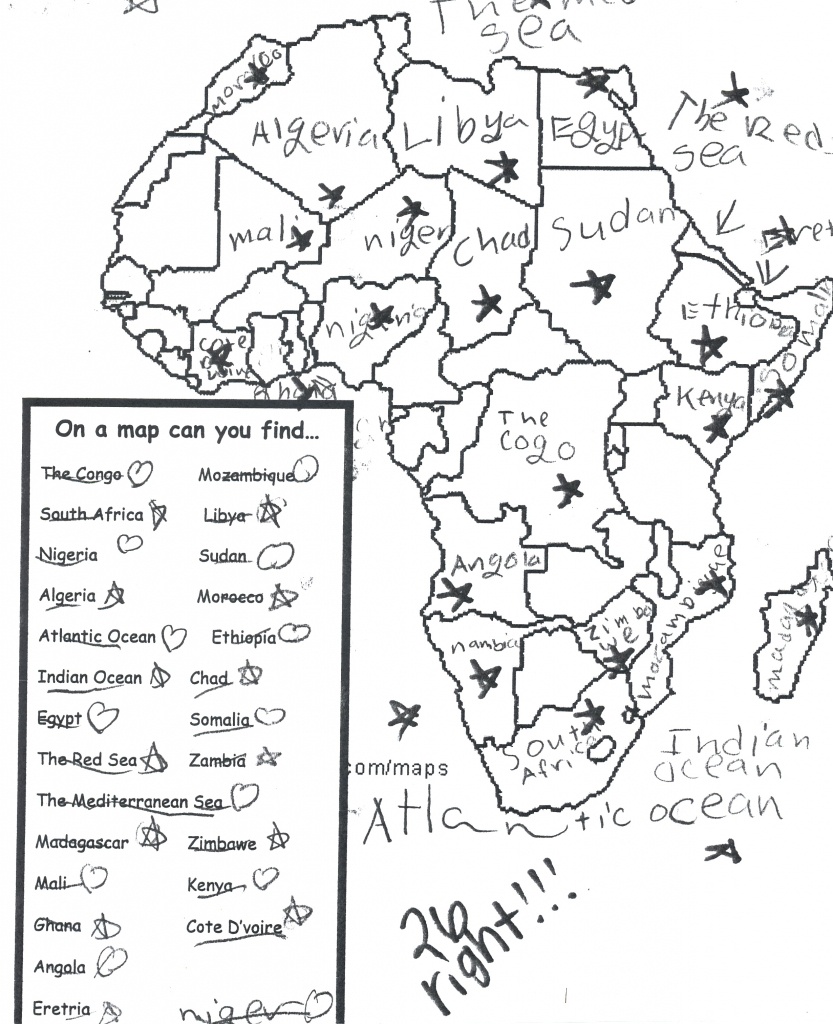 The Med
sea
Morocco
Algeria
Libya
Egypt
The Red
sea
mali
niger
Chad
Sudan
Eret
nigeria
Ethiopea
Somali
Cote
D
voire
Ghana
Kenya
The
Cogo
Angola
nambia
Zimba
we
mozambique
madagas
South
Africa
Indian
ocean
com/maps
Atlantic ocean
26
right!!!
On a map can you find...
The Congo Mozambique
South Africa Libya
Nigeria Sudan
Algeria Morocco
Atlantic Ocean Ethiopia
Indian Ocean Chad
Egypt Somalia
The Red Sea Zambia
The Mediterranean Sea
Madagascar Zimbawe
Mali Kenya
Ghana Cote D'voire
Angola
Eretria niger